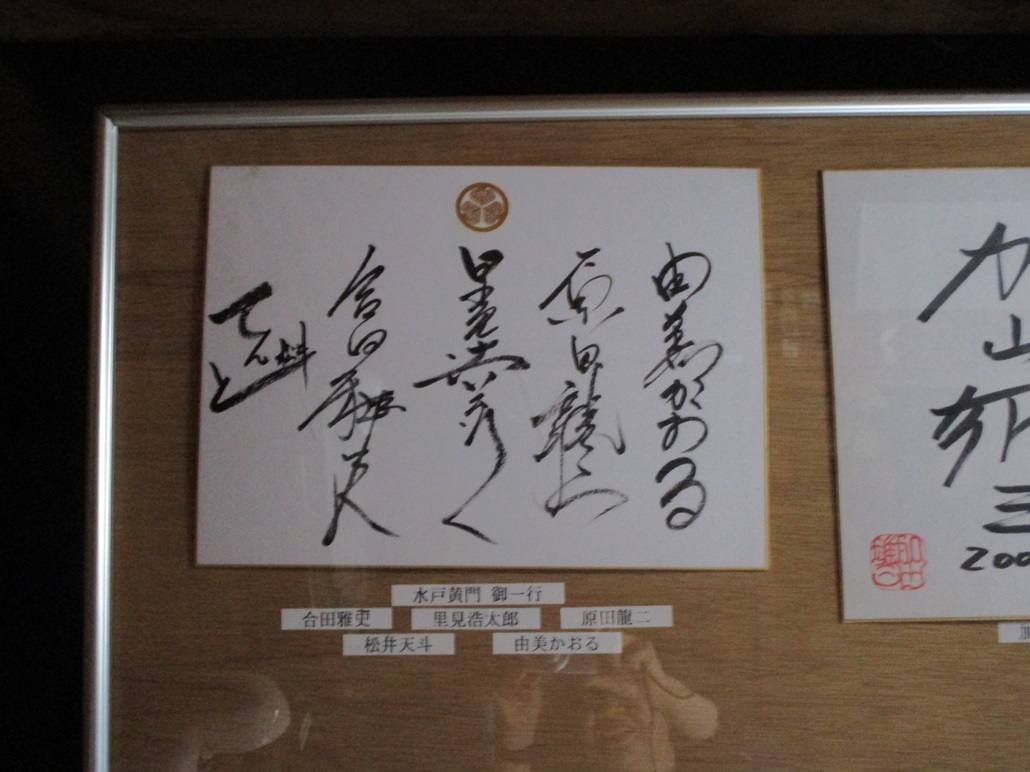 由美かおる
原田龍二
里見浩太朗
合田雅吏
てんと
加山雄三
200
水戸黄門 御一行
合田雅吏 里見浩太郎 原田龍二
松井天斗 由美かおる